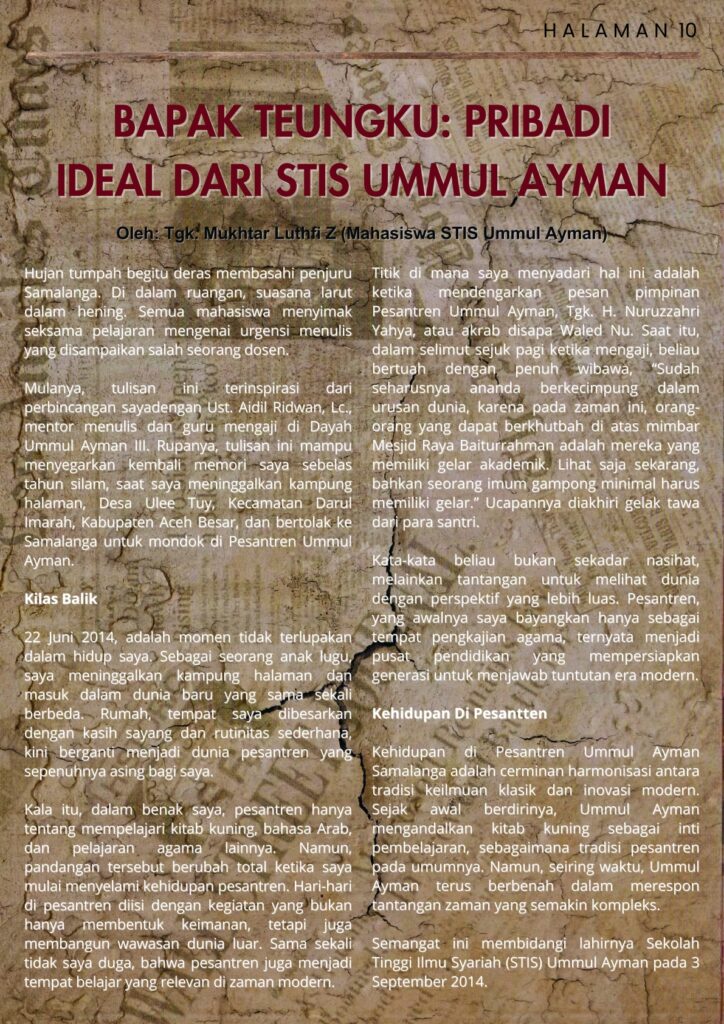 HALAMAN 10
BAPAK TEUNGKU: PRIBADI
IDEAL DARI STIS UMMUL AYMAN
Oleh: Tgk. Mukhtar Luthfi Z (Mahasiswa STIS Ummul Ayman)
Hujan tumpah begitu deras membasahi penjuru
Samalanga. Di dalam ruangan, suasana larut
dalam hening. Semua mahasiswa menyimak
seksama pelajaran mengenai urgensi menulis
yang disampaikan salah seorang dosen.
Mulanya, tulisan ini terinspirasi dari
perbincangan sayadengan Ust. Aidil Ridwan, Lc.,
mentor menulis dan guru mengaji di Dayah
Ummul Ayman III. Rupanya, tulisan ini mampu
menyegarkan kembali memori saya sebelas
tahun silam, saat saya meninggalkan kampung
halaman, Desa Ulee Tuy, Kecamatan Darul
Imarah, Kabupaten Aceh Besar, dan bertolak ke
Samalanga untuk mondok di Pesantren Ummul
Ayman.
Kilas Balik
22 Juni 2014, adalah momen tidak terlupakan
dalam hidup saya. Sebagai seorang anak lugu,
saya meninggalkan kampung halaman dan
masuk dalam dunia baru yang sama sekali
berbeda. Rumah, tempat saya dibesarkan
dengan kasih sayang dan rutinitas sederhana,
kini berganti menjadi dunia pesantren yang
sepenuhnya asing bagi saya.
Kala itu, dalam benak saya, pesantren hanya
tentang mempelajari kitab kuning, bahasa Arab,
dan pelajaran agama lainnya. Namun,
pandangan tersebut berubah total ketika saya
mulai menyelami kehidupan pesantren. Hari-hari
di pesantren diisi dengan kegiatan yang bukan
hanya membentuk keimanan, tetapi juga
membangun wawasan dunia luar. Sama sekali
tidak saya duga, bahwa pesantren juga menjadi
tempat belajar yang relevan di zaman modern.
Titik di mana saya menyadari hal ini adalah
ketika mendengarkan pesan pimpinan
Pesantren Ummul Ayman, Tgk. H. Nuruzzahri
Yahya, atau akrab disapa Waled Nu. Saat itu,
dalam selimut sejuk pagi ketika mengaji, beliau
bertuah dengan penuh wibawa, “Sudah
seharusnya ananda berkecimpung dalam
urusan dunia, karena pada zaman ini, orang-
orang yang dapat berkhutbah di atas mimbar
Mesjid Raya Baiturrahman adalah mereka yang
memiliki gelar akademik. Lihat saja sekarang,
bahkan seorang imum gampong minimal harus
memiliki gelar.” Ucapannya diakhiri gelak tawa
dari para santri.
Kata-kata beliau bukan sekadar nasihat,
melainkan tantangan untuk melihat dunia
dengan perspektif yang lebih luas. Pesantren,
yang awalnya saya bayangkan hanya sebagai
tempat pengkajian agama, ternyata menjadi
pusat pendidikan yang mempersiapkan
generasi untuk menjawab tuntutan era modern.
Kehidupan Di Pesantten
Kehidupan di Pesantren Ummul Ayman
Samalanga adalah cerminan harmonisasi antara
tradisi keilmuan klasik dan inovasi modern.
Sejak awal berdirinya, Ummul Ayman
mengandalkan kitab kuning sebagai inti
pembelajaran, sebagaimana tradisi pesantren
pada umumnya. Namun, seiring waktu, Ummul
Ayman terus berbenah dalam merespon
tantangan zaman yang semakin kompleks.
Semangat ini membidangi lahirnya Sekolah
Tinggi Ilmu Syariah (STIS) Ummul Ayman pada 3
September 2014.